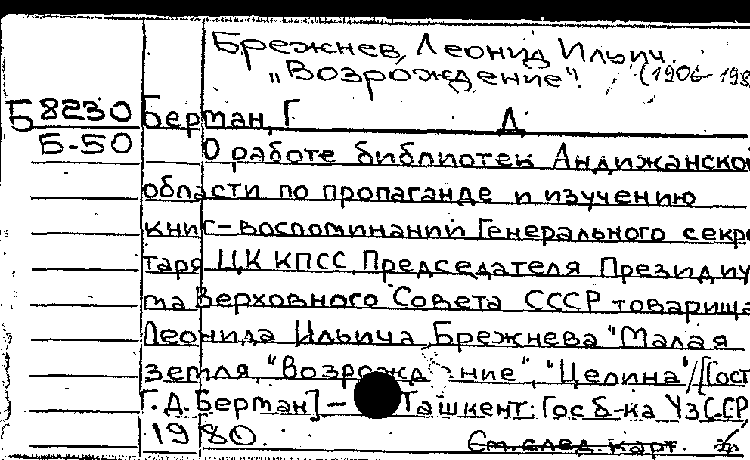 Брежнев, Леонид Ильич.
„Возрождение". (1906-198
Б8230 Берман, Г Д
Б-50 О работе библиотек Андижанской
области по пропаганде и изучению
книг-воспоминаний Генерального секре
таря ЦК КПСС Председателя Президиу
ма Верховного Совета СССР товарища
Леонида Ильича Брежнева "Малая
земля, "Возрождение", "Целина"/[Сост
Г.Д.Берман]- Ташкент: Гос б-ка УзССР,
1980.
См. след. карт.